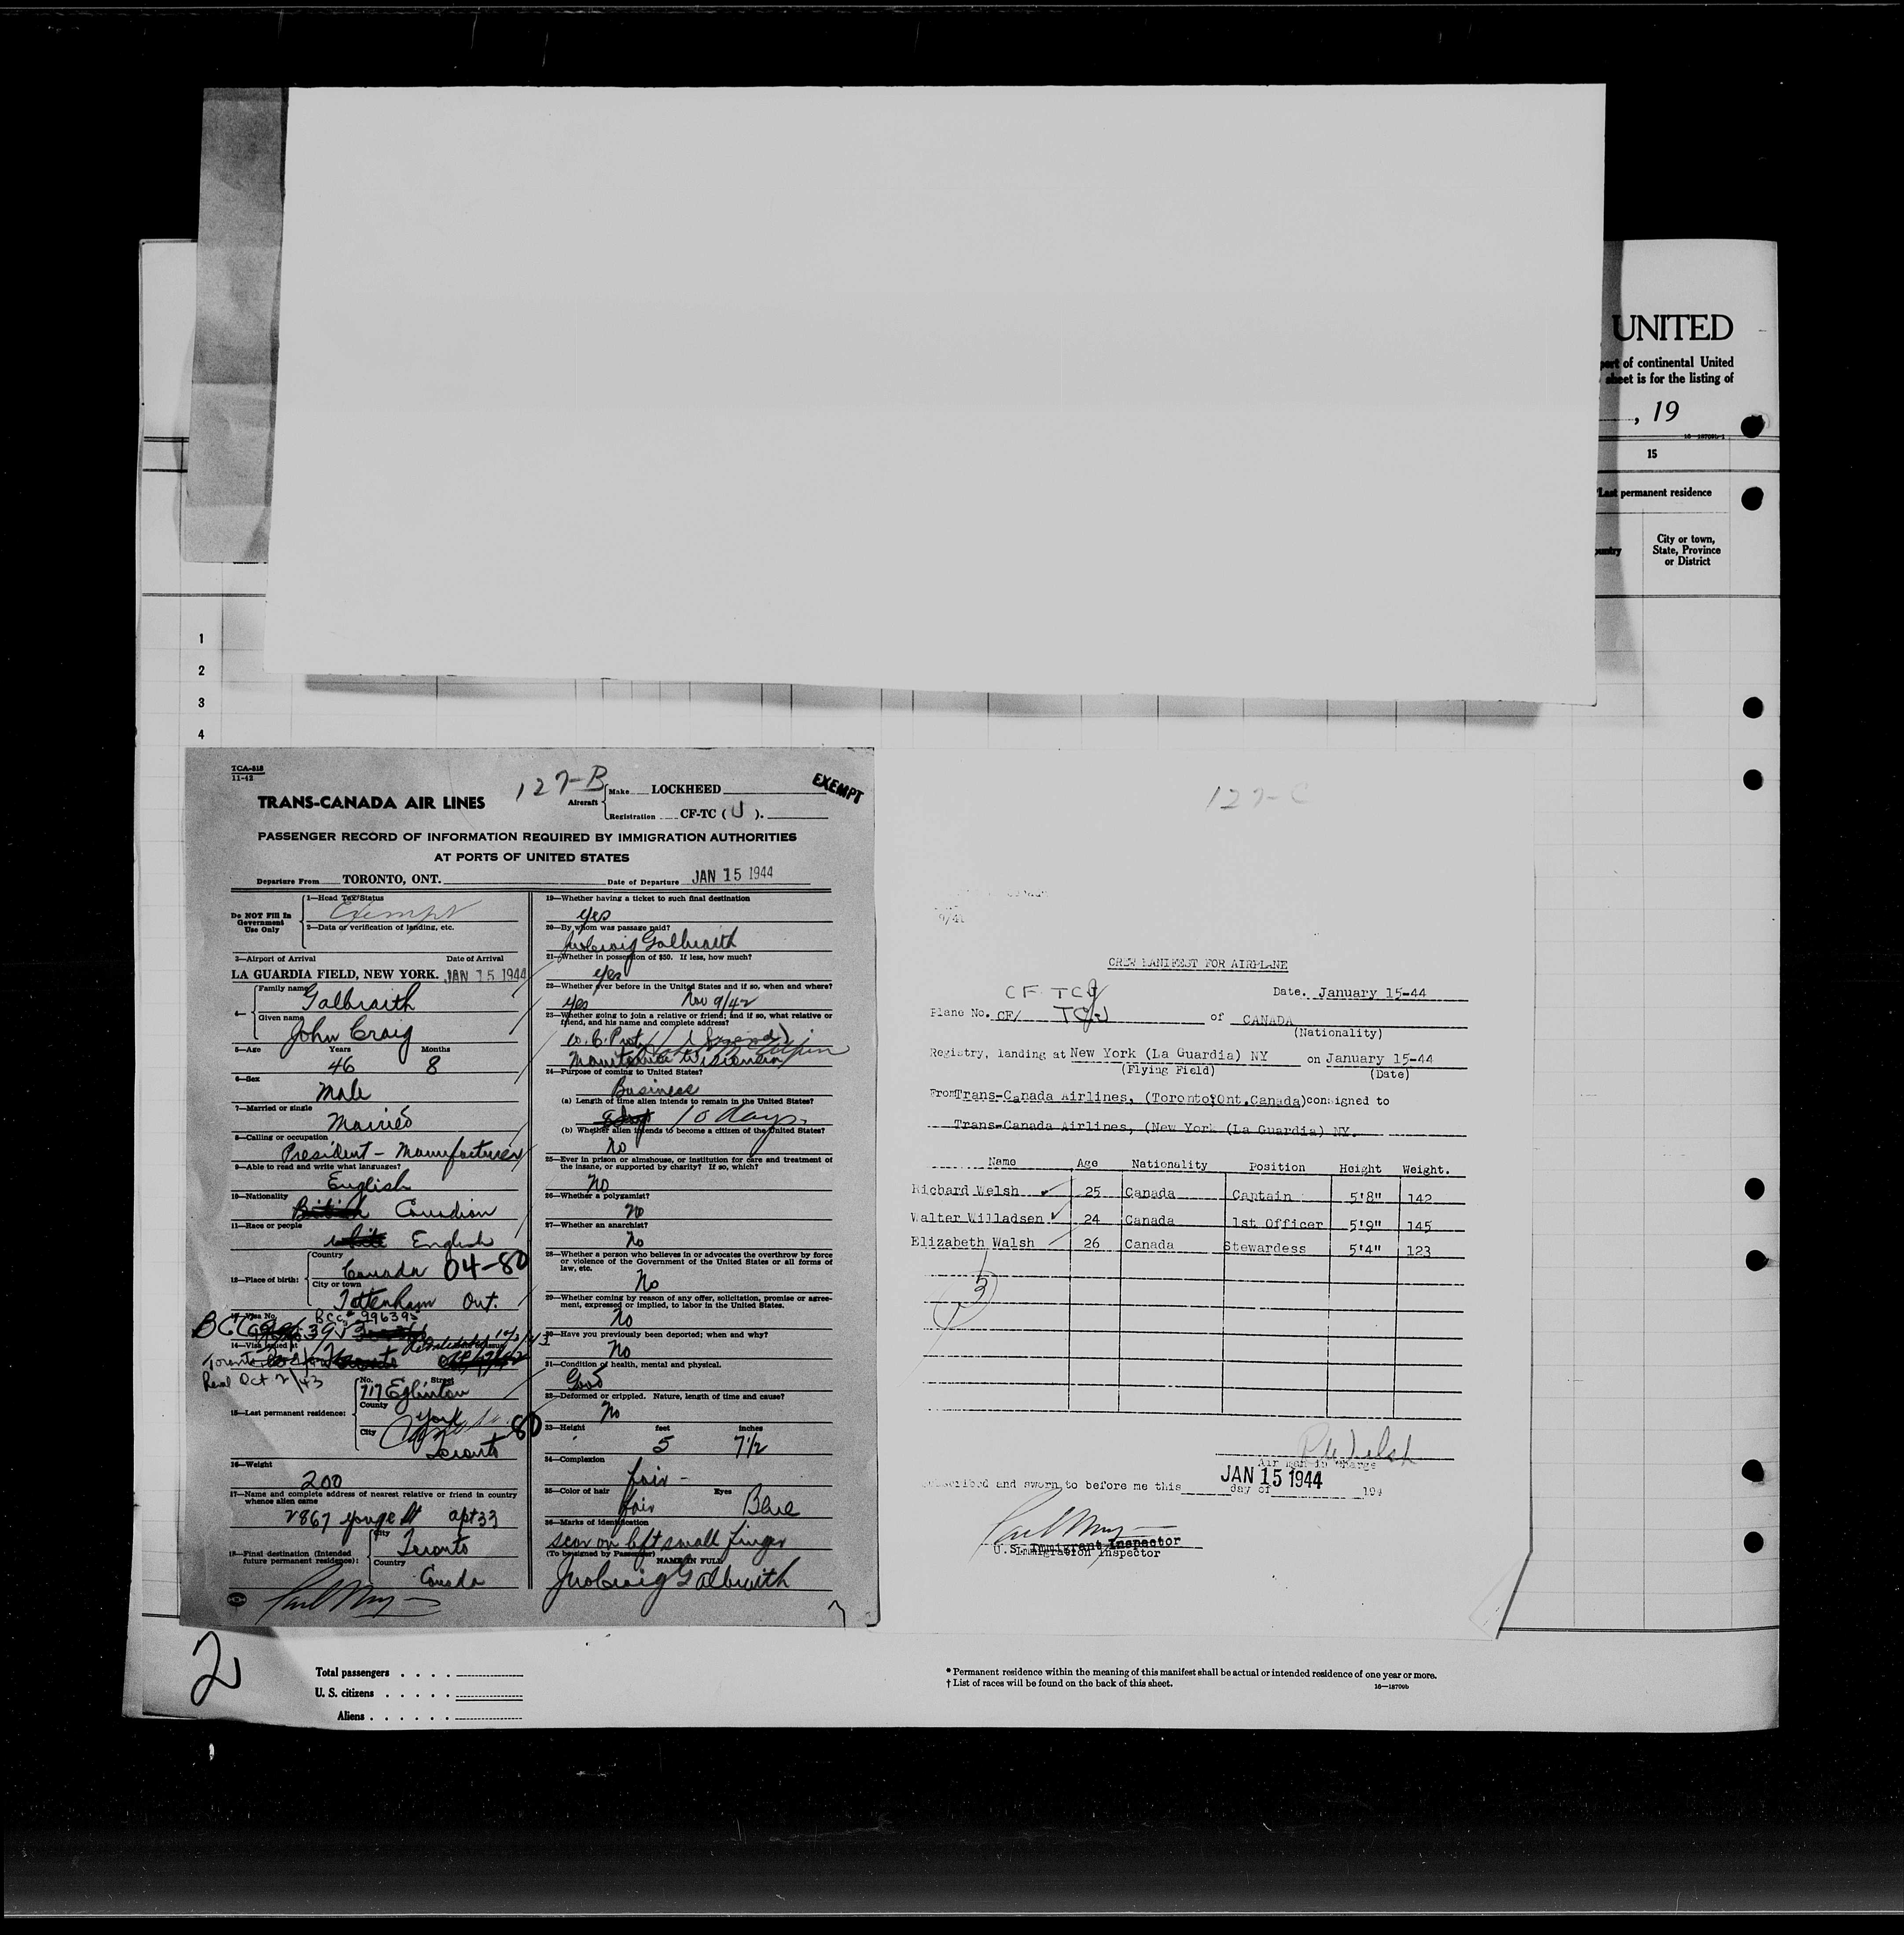 UNITED
part of continental United
sheet is for the listing of
, 19
16—18709b-1
15
*Last permanent residence
Country
City or town,
State, Province
or District
1
2
3
4
TCA-518
11-42
127-B
EXEMPT
TRANS-CANADA AIR LINES
Aircraft
Make LOCKHEED
Registration CF-TC ( J ).
PASSENGER RECORD OF INFORMATION REQUIRED BY IMMIGRATION AUTHORITIES
AT PORTS OF UNITED STATES
Departure From TORONTO, ONT. Date of Departure JAN 15 1944
Do NOT Fill In
Government
Use Only
1—Head Tax Status
Exempt
2—Data or verification of landing, etc.
3—Airport of Arrival Date of Arrival
LA GUARDIA FIELD, NEW YORK. JAN 15 1944
4—
Family name
Galbraith
Given name
John Craig
5—Age Years Months
46 8
6—Sex
Male
7—Married or single
Married
8—Calling or occupation
President - Manufacturer
9—Able to read and write what languages?
English
10—Nationality
British Canadian
11—Race or people
white English
12—Place of birth:
Country
Canada 04-80
City or town
Tottenham Ont.
13—Visa No. BCC# 996395
14—Visa issued at
Toronto
Read Oct 2/43
15—Last permanent residence:
No. Street
717 Eglinton
County
York
City 80
Toronto
16—Weight
200
17—Name and complete address of nearest relative or friend in country
whence alien came
2867 Yonge St apt 33
18—Final destination (Intended
future permanent residence):
City
Toronto
Country
Canada
19—Whether having a ticket to such final destination
Yes
20—By whom was passage paid?
Jno Craig Galbraith
21—Whether in possession of $50. If less, how much?
Yes
22—Whether ever before in the United States and if so, when and where?
Yes Nov 9/42
23—Whether going to join a relative or friend; and if so, what relative or
friend, and his name and complete address?
(friend)
Manitowoc Wisconsin
24—Purpose of coming to United States?
Business
(a) Length of time alien intends to remain in the United States?
10 days
(b) Whether alien intends to become a citizen of the United States?
No
25—Ever in prison or almshouse, or institution for care and treatment of
the insane, or supported by charity? If so, which?
No
26—Whether a polygamist?
No
27—Whether an anarchist?
No
28—Whether a person who believes in or advocates the overthrow by force
or violence of the Government of the United States or all forms of
law, etc.
No
29—Whether coming by reason of any offer, solicitation, promise or agree-
ment, expressed or implied, to labor in the United States.
No
30—Have you previously been deported; when and why?
No
31—Condition of health, mental and physical.
Good
32—Deformed or crippled. Nature, length of time and cause?
No
33—Height feet inches
5 7 1/2
34—Complexion
fair -
35—Color of hair Eyes
fair Blue
36—Marks of identification
scar on left small finger
(To be signed by Passenger) NAME IN FULL
Jno Craig Galbraith
127-C
9/41
CREW MANIFEST FOR AIRPLANE
CF TCJ
Date. January 15-44
Plane No. CF/ TCJ of CANADA
(Nationality)
Registry, landing at New York (La Guardia) NY on January 15-44
(Flying Field) (Date)
From Trans-Canada Airlines, (Toronto,Ont.Canada) consigned to
Trans-Canada Airlines, (New York (La Guardia) NY.
Name Age Nationality Position Height Weight.
Richard Welsh 25 Canada Captain 5'8" 142
Walter Willadsen 24 Canada 1st Officer 5'9" 145
Elizabeth Walsh 26 Canada Stewardess 5'4" 123
3
R Welsh
Air man in charge
Subscribed and sworn to before me this day of 194
JAN 15 1944
U.S. Immigrant Inspector
Immigration Inspector
2
Total passengers . . . .
U. S. citizens . . . . .
Aliens . . . . . .
* Permanent residence within the meaning of this manifest shall be actual or intended residence of one year or more.
† List of races will be found on the back of this sheet.
16—18709b